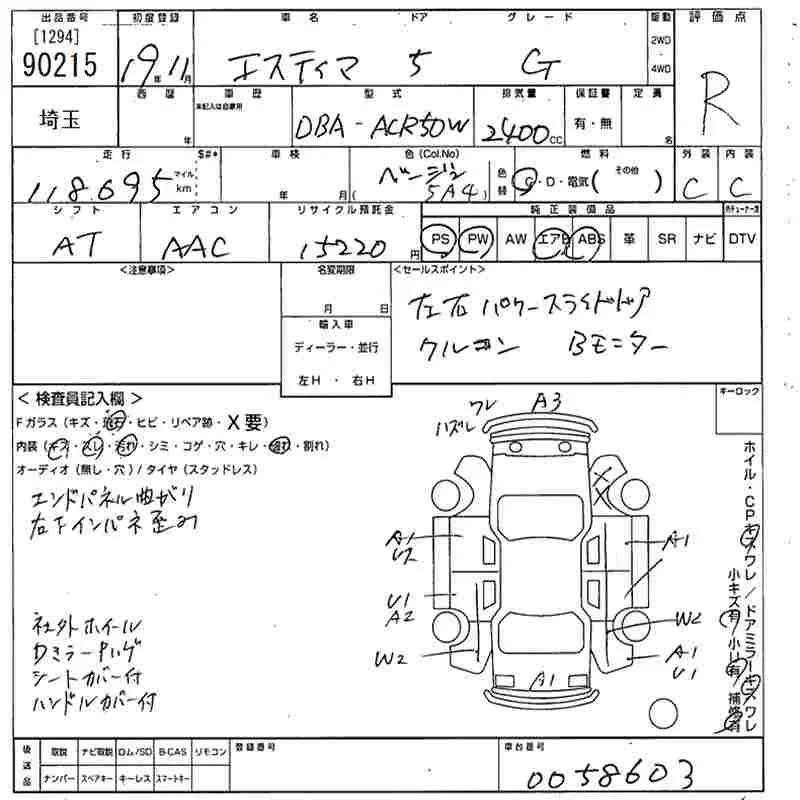 出品番号 初度登録 車名 ドア グレード 駆動 評価点
[1294]
90215 19年 11月 エスティマ 5 G 2WD 4WD R
埼玉 西暦 年 車歴 未記入は自家用 型式 排気量 保証書 定員
DBA-ACR50W 2400cc 有・無 名
走行 $#* 車検 色(Col.No) 燃料 外装 内装
118,695 マイル km 年 月 ベージュ (5A4) 色替 G・D・電気( その他 ) C C
シフト エアコン リサイクル預託金 純正装備品
AT AAC 15220円 PS PW AW エアB ABS 革 SR ナビ DTV
<注意事項> 名変期限 <セールスポイント>
月 日 左右パワースライドドア
輸入車 クルコン Bモニター
ディーラー・並行
左H・右H
<検査員記入欄> キーロック
Fガラス(キズ・飛石・ヒビ・リペア跡・X要)
内装(キズ・スレ・汚れ・シミ・コゲ・穴・キレ・割れ)
オーディオ(無し・穴)/タイヤ(スタッドレス)
エンドパネル曲がり
右下インパネ歪み
社外ホイール
Dミラーハゲ
シートカバー付
ハンドルカバー付
ワレ A3
ハズレ
XX
A1 A1
U1
A2 W2
W2 A1
U1
A1
ホイル・CPキズワレ/ドアミラーキズワレ
小キズ有 小U有 補修有
後送品 取説 ナビ取説 ロム/SD B-CAS リモコン 登録番号 車台番号
ナンバー スペアキー キーレス スマートキー 0058603